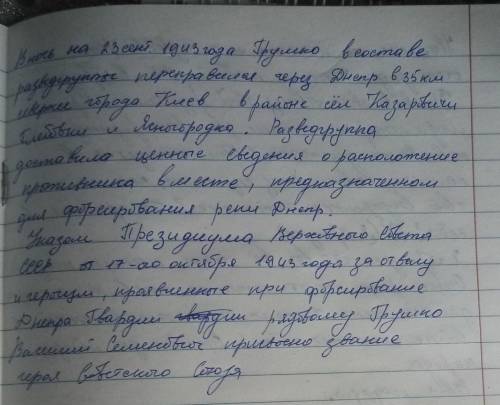 В ночь на 23 сент. 1943 года Грумко в составе
разведгруппы переправился через Днепр в 35 км
города Киев в районе сёл Казаровичи
и Ясногородка. Разведгруппа
доставила ценные сведения о расположение
противника в месте, предназначенном
для форсирования реки Днепр.
Указом Президиума Верховного Совета
СССР от 17-ого октября 1943 года за отвагу
и героизм, проявленные при форсирование
Днепра Гвардии рядовому Грумко
Василий Семенович присвоено звание
героя Советского Союза